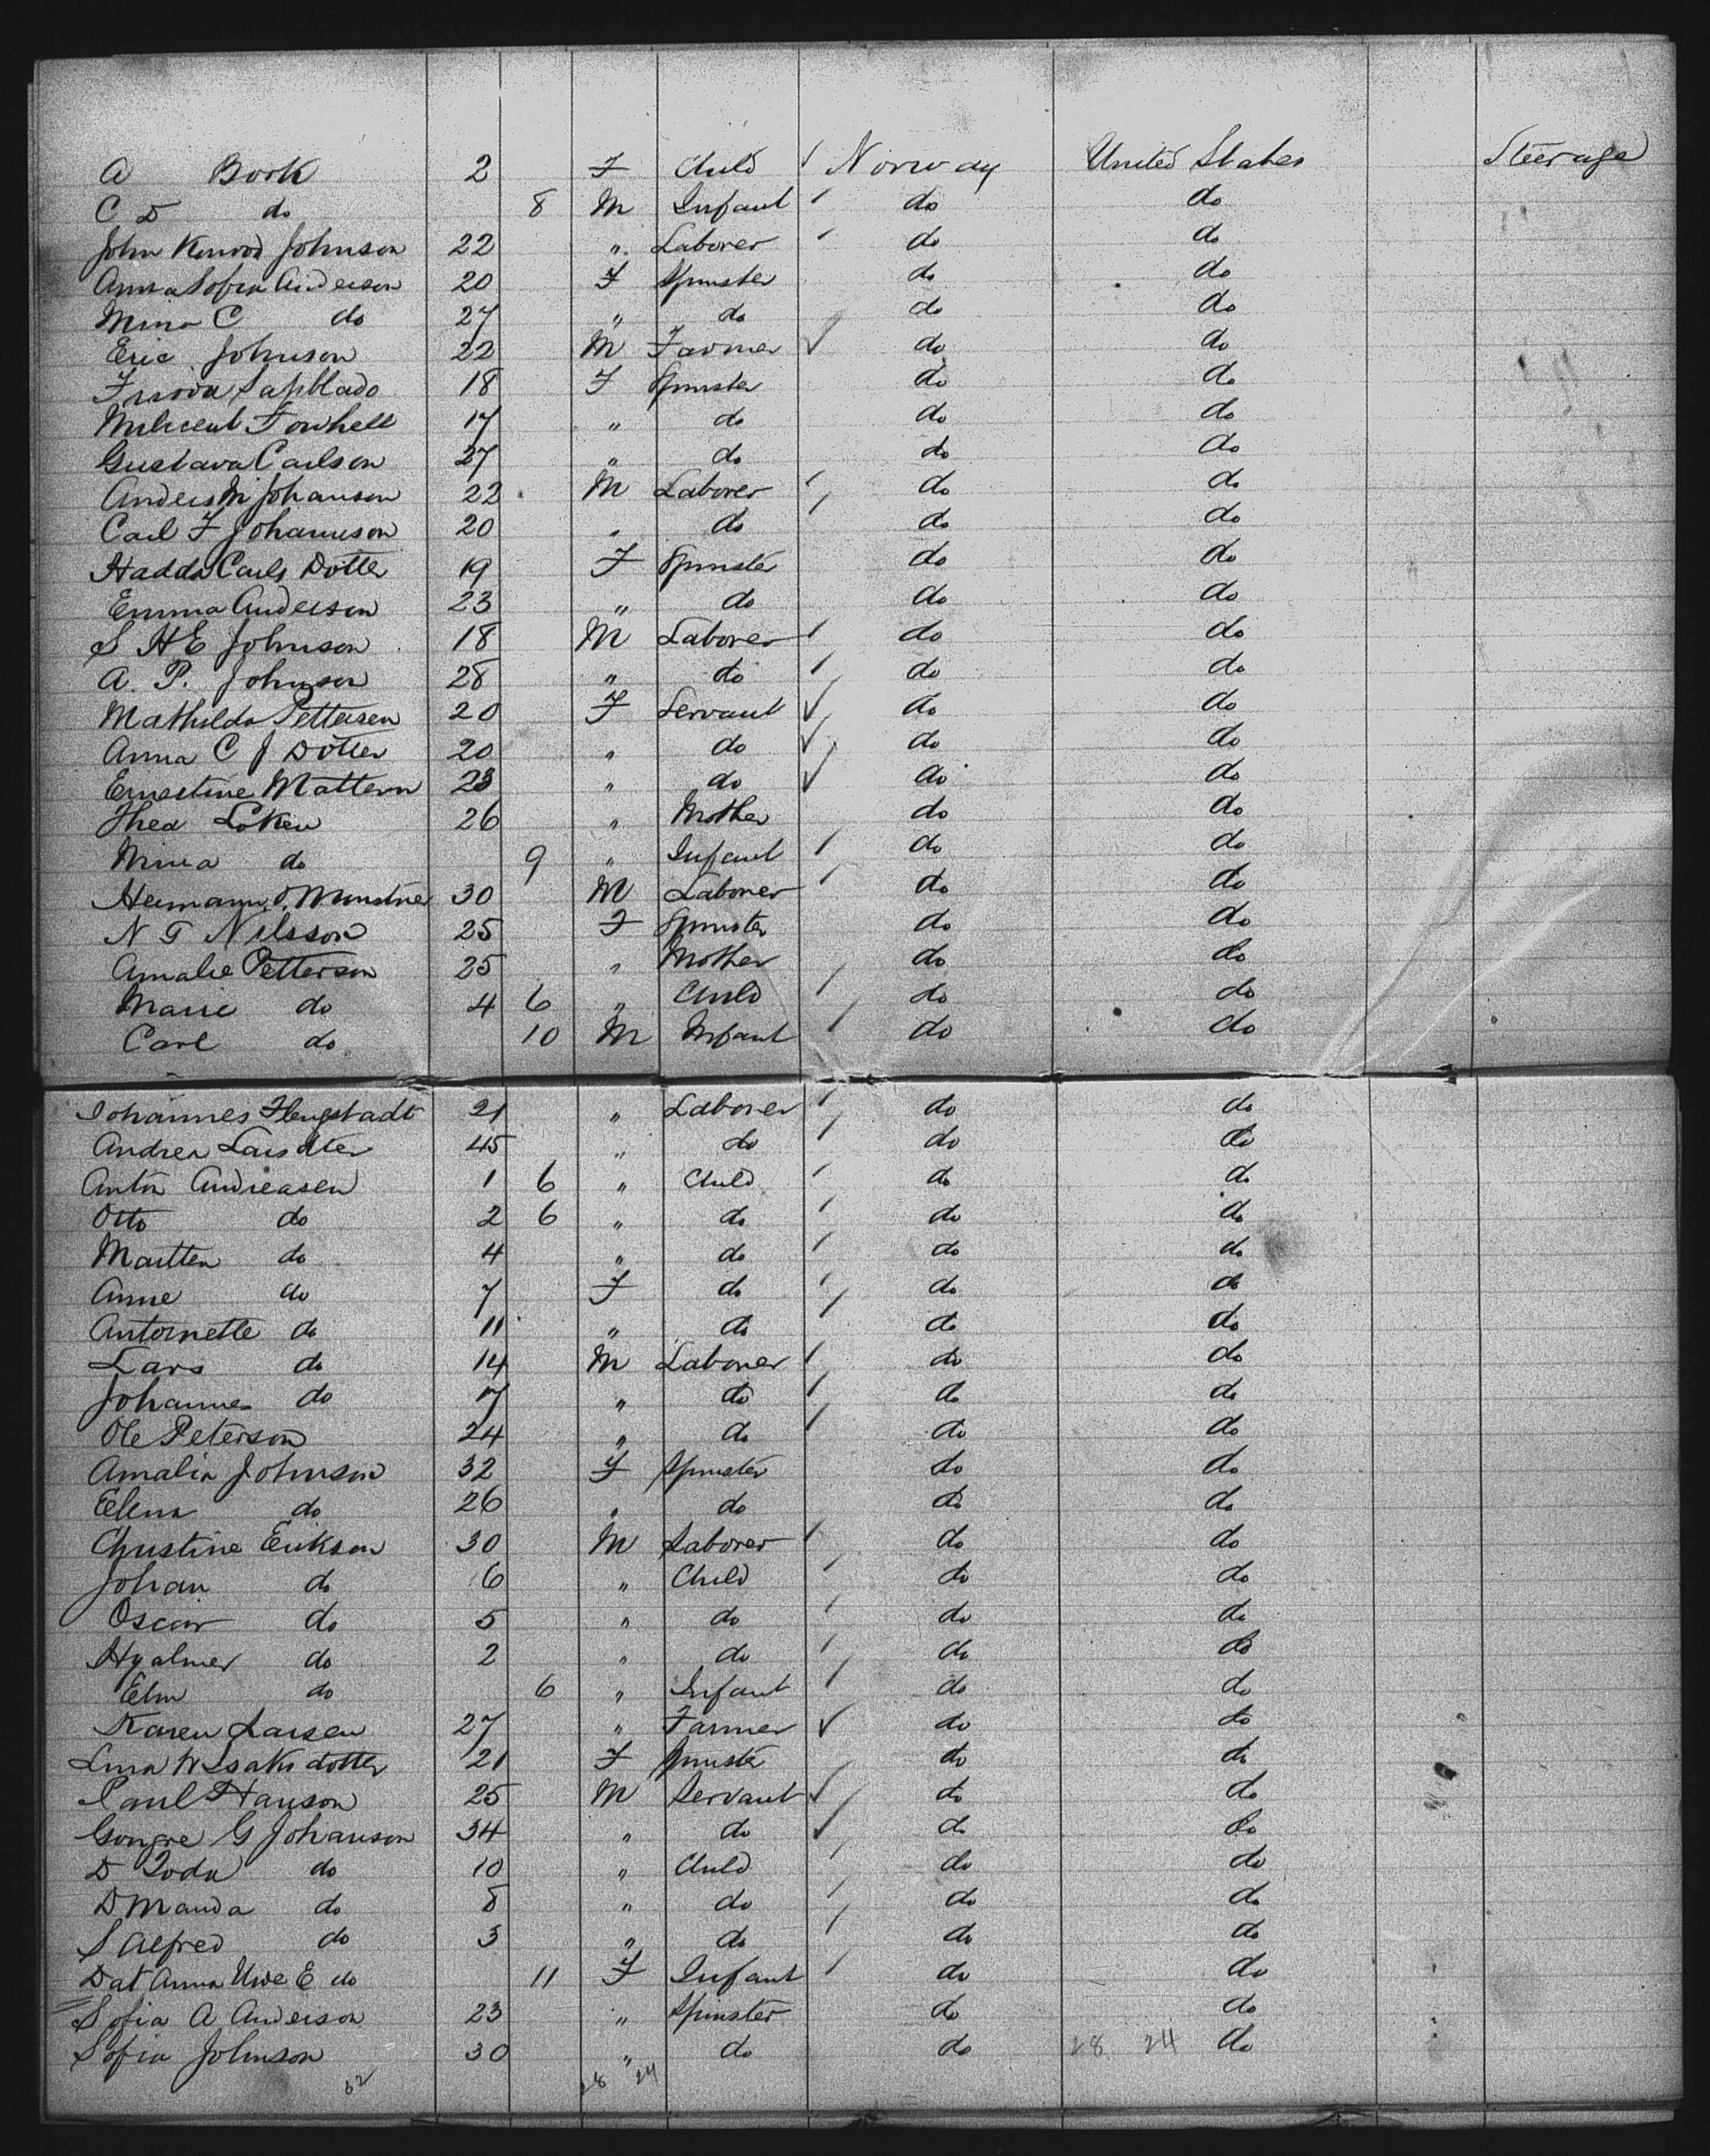 A Bork 2 F Child Norway United States Steerage
C D do 8 M Infant do do
John Konrod Johnson 22 " Laborer do do
Anna Sofia Anderson 20 F Spinster do do
Mina C do 27 " do do do
Eric Johnson 22 M Farmer do do
18 F Spinster do do
17 " do do do
Gustava Carlson 27 " do do do
Anders M Johanson 22 M Laborer do do
Carl F Johannson 20 " do do do
Hadda Carls Dotter 19 F Spinster do do
Emma Anderson 23 " do do do
S H E Johnson 18 M Laborer do do
A. P. Johnson 28 " do do do
Mathilda Pettersen 20 F Servant do do
Anna C J Dotter 20 " do do do
Ernestine Mattern 23 " do do do
Thea Loken 26 " Mother do do
Mina do 9 " Infant do do
Hermann O. 30 M Laborer do do
N T Nilsson 25 F Spinster do do
Amalie Petterson 25 " Mother do do
Marie do 4 6 " Child do do
Carl do 10 M Infant do do
Johannes 21 " Laborer do do
Andrea 45 " do do do
Anton Andreasen 1 6 " Child do do
Otto do 2 6 " do do do
Martten do 4 " do do do
Anne do 7 F do do do
Antoinette do 11 " do do do
Lars do 14 M Laborer do do
Johannes do 17 " do do do
Ole Peterson 24 " do do do
Amalia Johnson 32 F Spinster do do
Elena do 26 " do do do
Christine Erikson 30 M Laborer do do
Johan do 6 " Child do do
Oscar do 5 " do do do
Hyalmer do 2 " do do do
Elm do 6 " Infant do do
Karen Larsen 27 " Farmer do do
Lina W Isaks dotter 21 F Spinster do do
Paul Hanson 25 M Servant do do
G Johanson 34 " do do do
D do 10 " Child do do
D Manda do 8 " do do do
S Alfred do 3 " do do do
Dat Anna E do 11 F Infant do do
Sofia A Anderson 23 " Spinster do do
Sofia Johnson 30 " do do 28 24 do
52 28 24